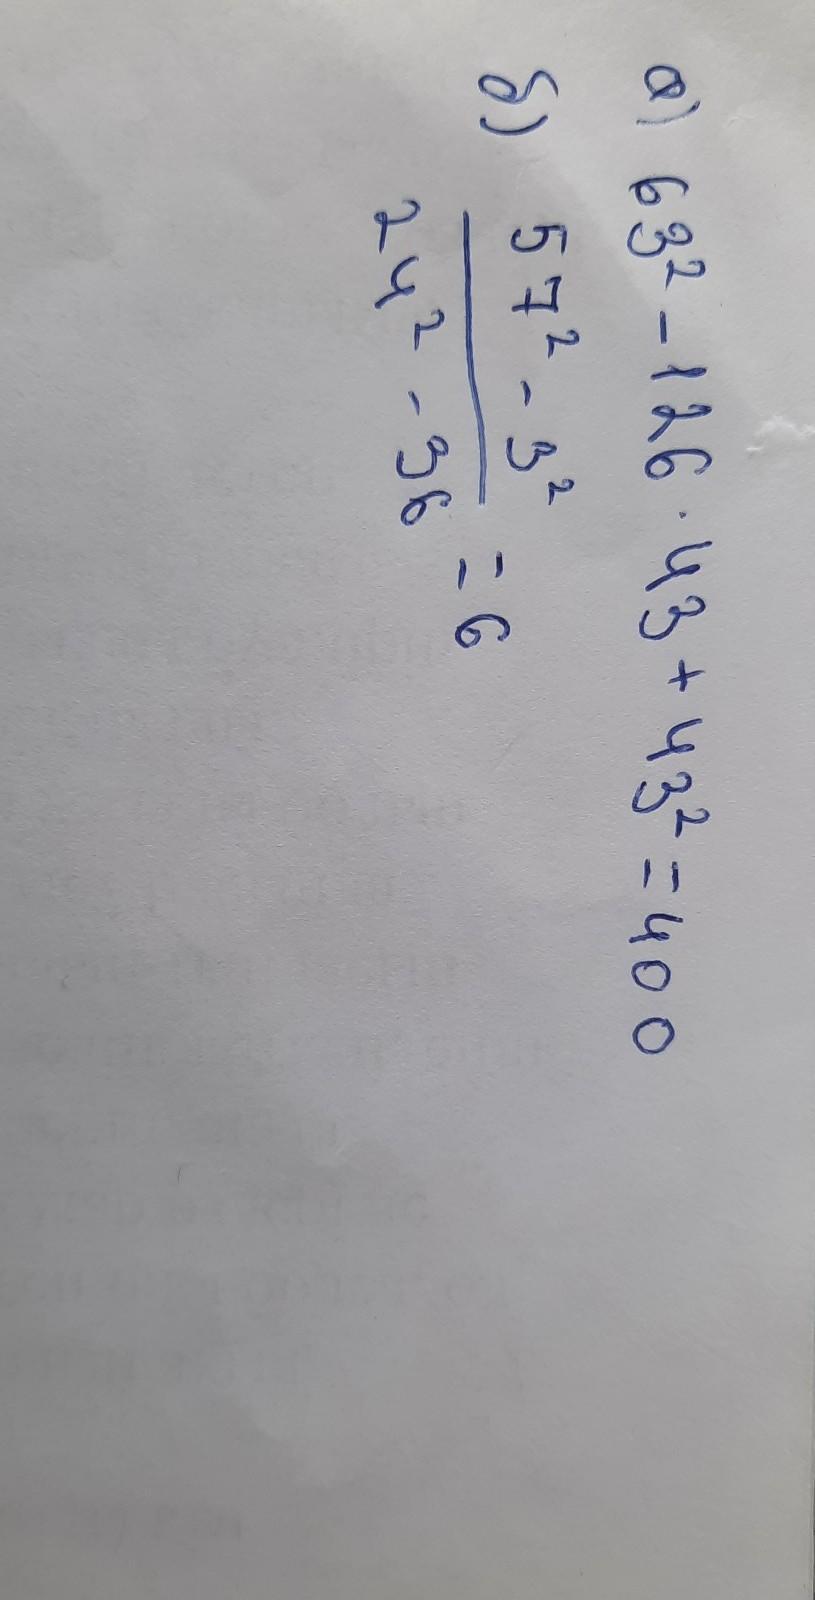 а) 63² - 126 · 43 + 43² = 400
б) 57² - 3²
24² - 36 = 6